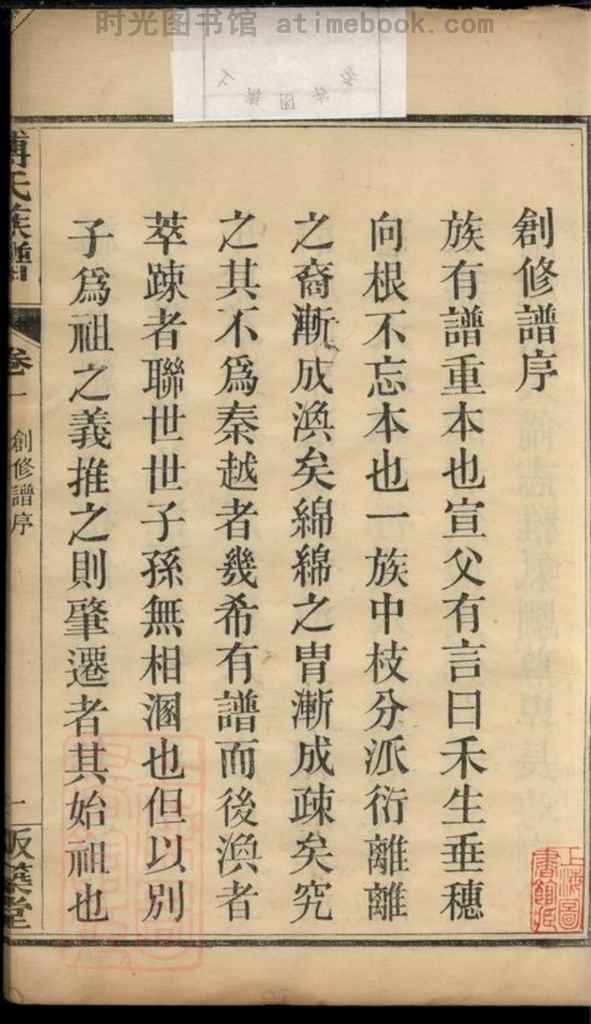 时光图书馆 atimebook.com
創修譜序
族有譜重本也宣父有言曰禾生垂穗
向根不忘本也一族中枝分派衍離離
之裔漸成渙矣綿綿之胄漸成疎矣究
之其不爲秦越者幾希有譜而後渙者
萃踈者聯世世子孫無相溷也但以別
子爲祖之義推之則肇遷者其始祖也
氏族譜
卷一
創修譜序
一
葉堂
上海圖書館藏